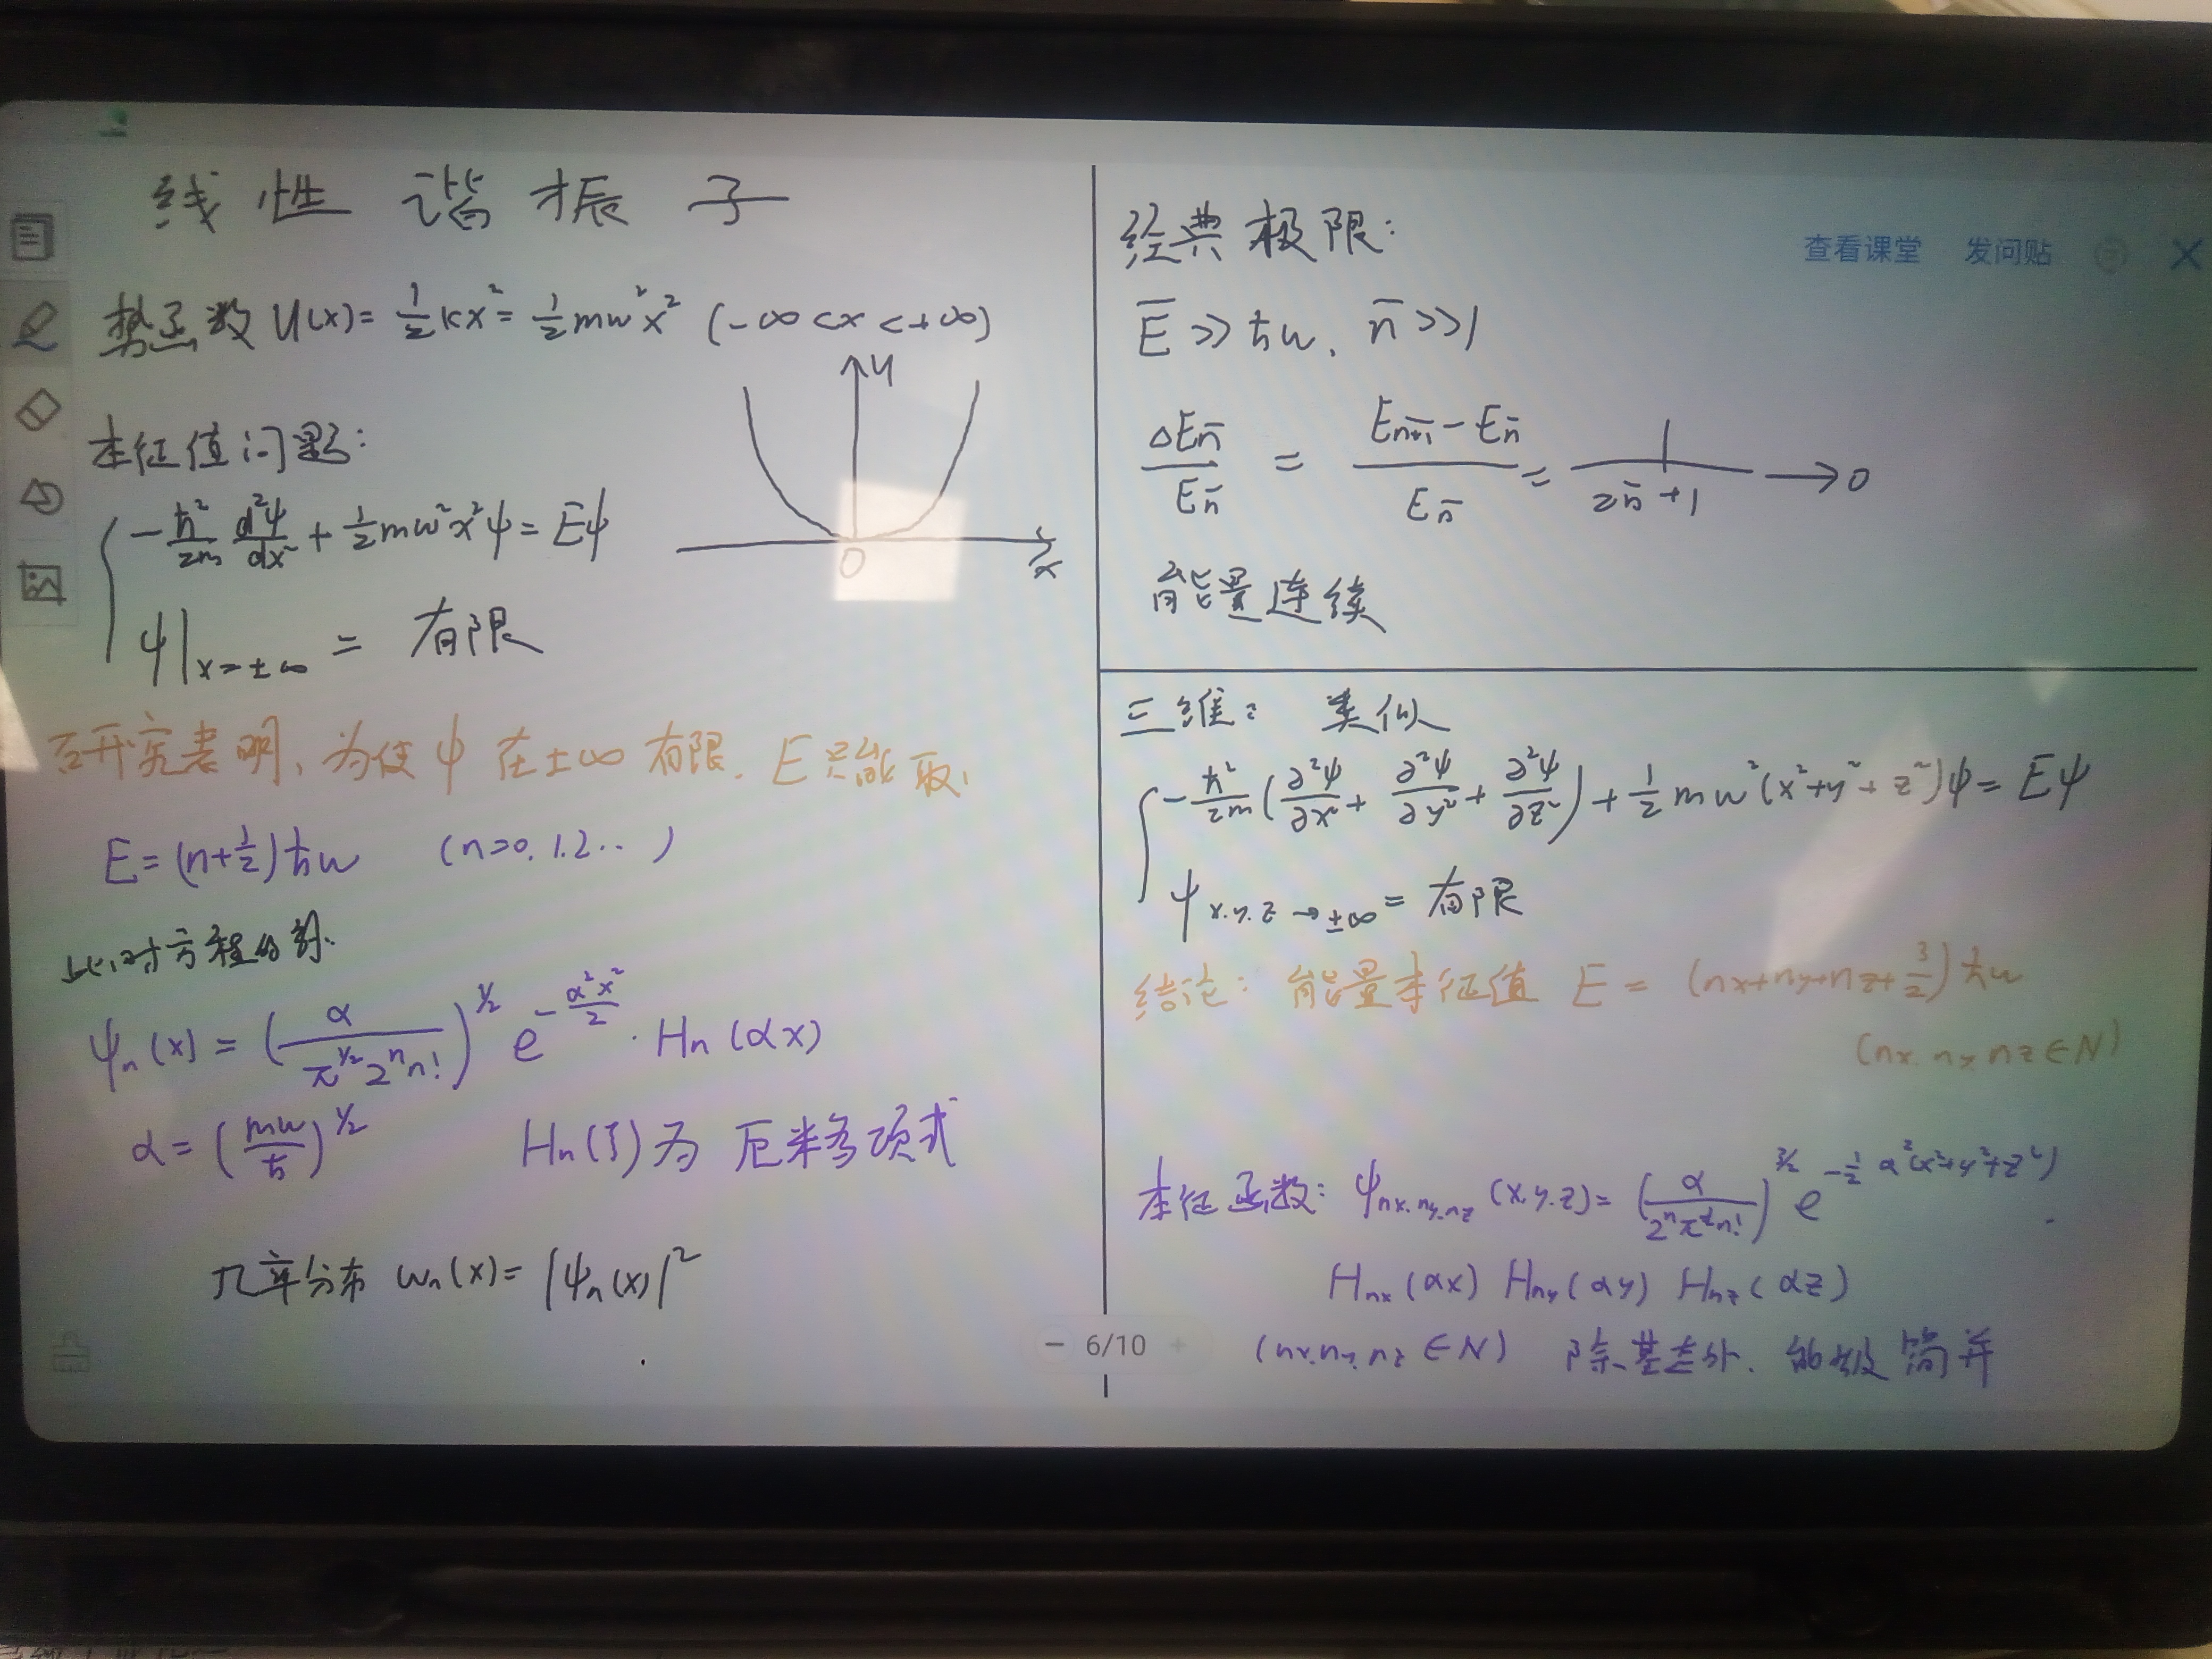 线性谐振子
势函数 U(x)= ½kx² = ½mω²x² (-∞<x<+∞)
U
x
0
本征值问题:
-ħ²/2m d²ψ/dx² + ½mω²x²ψ = Eψ
ψ|x=±∞ = 有限
研究表明, 为使ψ在±∞有限. E只能取,
E=(n+½)ħω (n=0.1.2..)
此时方程的解.
ψn(x) = (α/π^½ 2ⁿn!)^½ e^(-α²x²/2) · Hn(αx)
α=(mω/ħ)^½ Hn(ξ)为厄米多项式
几率分布 ωn(x)= |ψn(x)|²
查看课堂 发问贴
经典极限:
E̅ >> ħω, n̅ >>1
ΔEn̅/En̅ = (En̅+1 - En̅)/En̅ = 1/(2n̅+1) → 0
能量连续
三维: 类似
-ħ²/2m (∂²ψ/∂x² + ∂²ψ/∂y² + ∂²ψ/∂z²) + ½mω²(x²+y²+z²)ψ = Eψ
ψ x.y.z→±∞ = 有限
结论: 能量本征值 E = (nx+ny+nz+3/2)ħω
(nx. ny nz∈N)
本征函数: ψnx.ny.nz (x.y.z)= (α/2ⁿπ^½n!)^3/2 e^(-½ α²(x²+y²+z²))
Hnx(αx) Hny(αy) Hnz(αz)
(nx.ny.nz ∈N) 除基态外. 能级简并
6/10